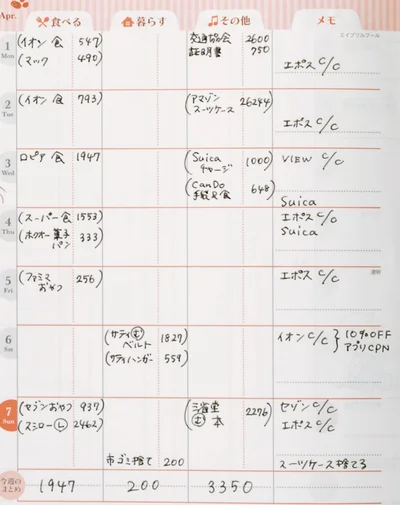 Apr.
食べる 暮らす その他 メモ
エイプリルフール
1 Mon
(イオン 食 547)
(マック 490)
交通協会 2600
証明書 750
エポス C/C
2 Tue
(イオン 食 793)
(アマゾン スーツケース 26244)
エポス C/C
3 Wed
ロピア 食 1947
(Suica チャージ 1000)
(CanDo 648)
VIEW C/C
Suica
4 Thu
(スーパー食 1553)
(ホクオー菓子パン 333)
エポス C/C
Suica
5 Fri
(ファミマ おやつ 256)
エポス C/C
6 Sat
(サティ む ベルト 1827)
(サティハンガー 559)
イオン C/C } 10%OFF アプリCPN
7 Sun
(セブンおやつ 937)
(スシロー L 2462)
市ゴミ捨て 200
(三省堂 む 本 2276)
セゾン C/C
エポス C/C
スーツケース捨てる
今週のまとめ 1947 200 3350